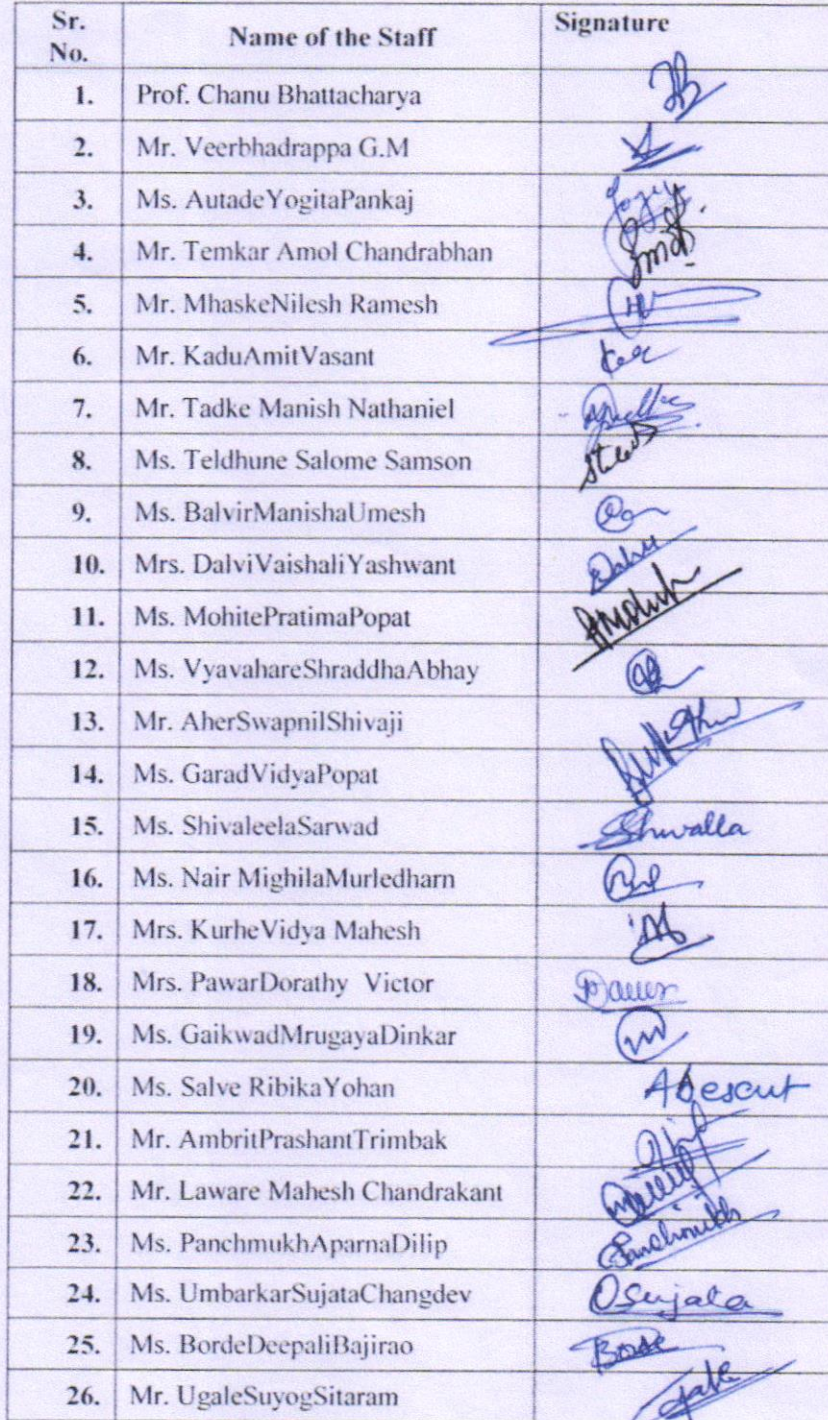 Sr. No. Name of the Staff Signature
1. Prof. Chanu Bhattacharya
2. Mr. Veerbhadrappa G.M
3. Ms. AutadeYogitaPankaj
4. Mr. Temkar Amol Chandrabhan
5. Mr. MhaskeNilesh Ramesh
6. Mr. KaduAmitVasant
7. Mr. Tadke Manish Nathaniel
8. Ms. Teldhune Salome Samson
9. Ms. BalvirManishaUmesh
10. Mrs. DalviVaishaliYashwant
11. Ms. MohitePratimaPopat
12. Ms. VyavahareShraddhaAbhay
13. Mr. AherSwapnilShivaji
14. Ms. GaradVidyaPopat
15. Ms. ShivaleelaSarwad
16. Ms. Nair MighilaMurledharn
17. Mrs. KurheVidya Mahesh
18. Mrs. PawarDorathy Victor
19. Ms. GaikwadMrugayaDinkar
20. Ms. Salve RibikaYohan
21. Mr. AmbritPrashantTrimbak
22. Mr. Laware Mahesh Chandrakant
23. Ms. PanchmukhAparnaDilip
24. Ms. UmbarkarSujataChangdev
25. Ms. BordeDeepaliBajirao
26. Mr. UgaleSuyogSitaram